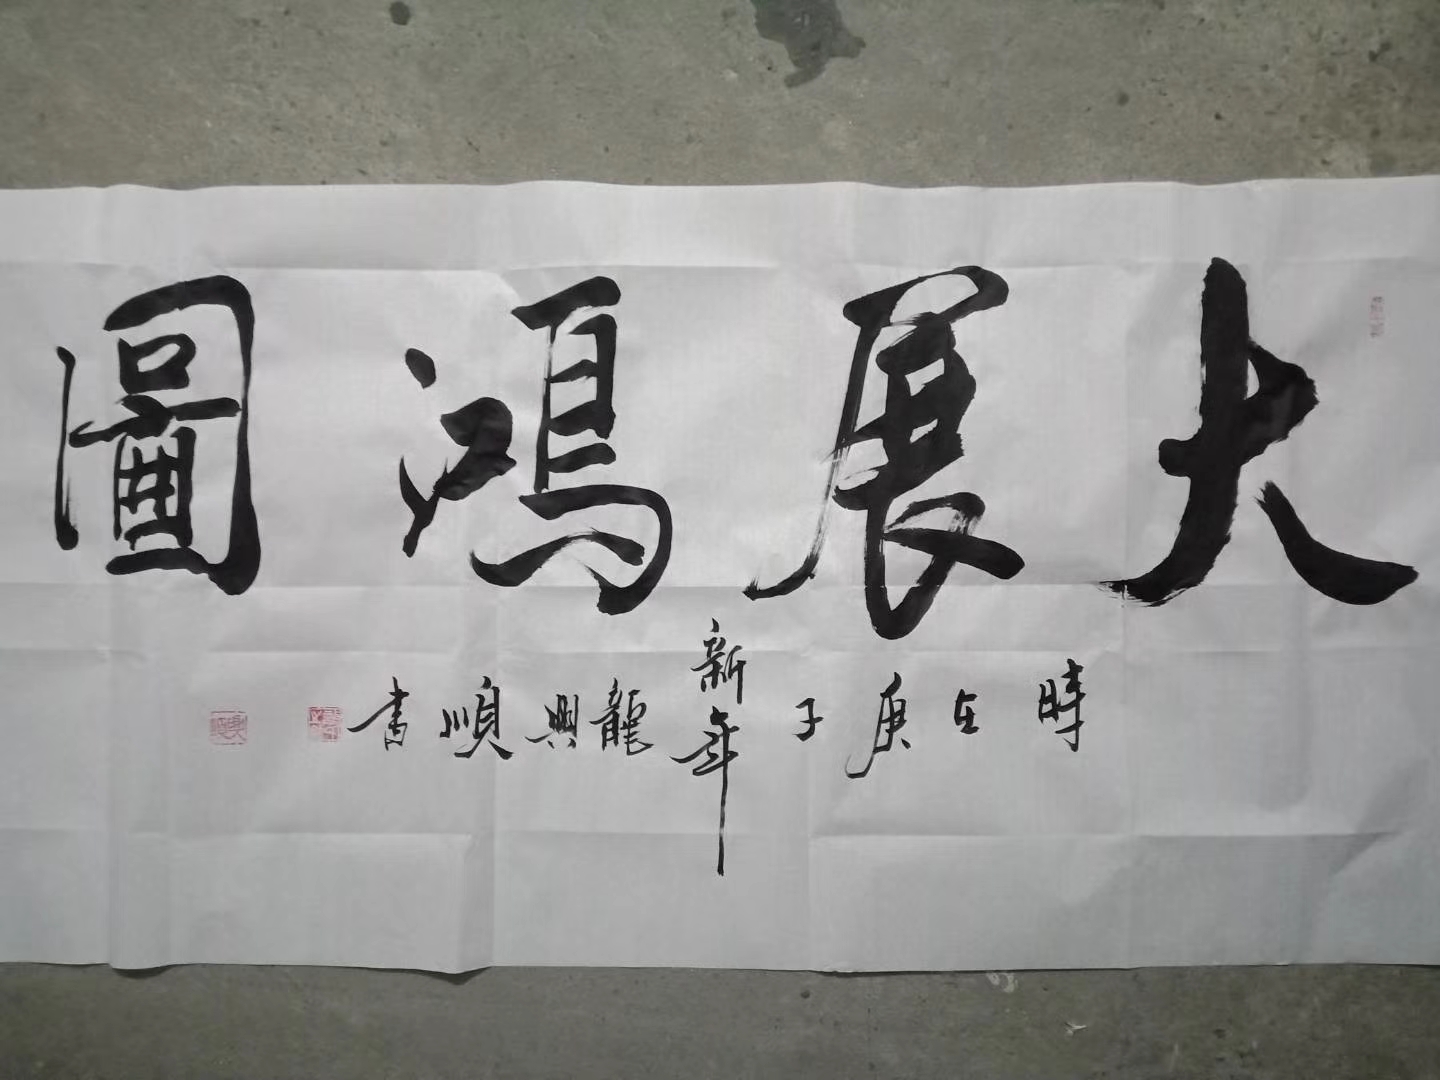 大展鴻圖
時在庚子新年龍興順書